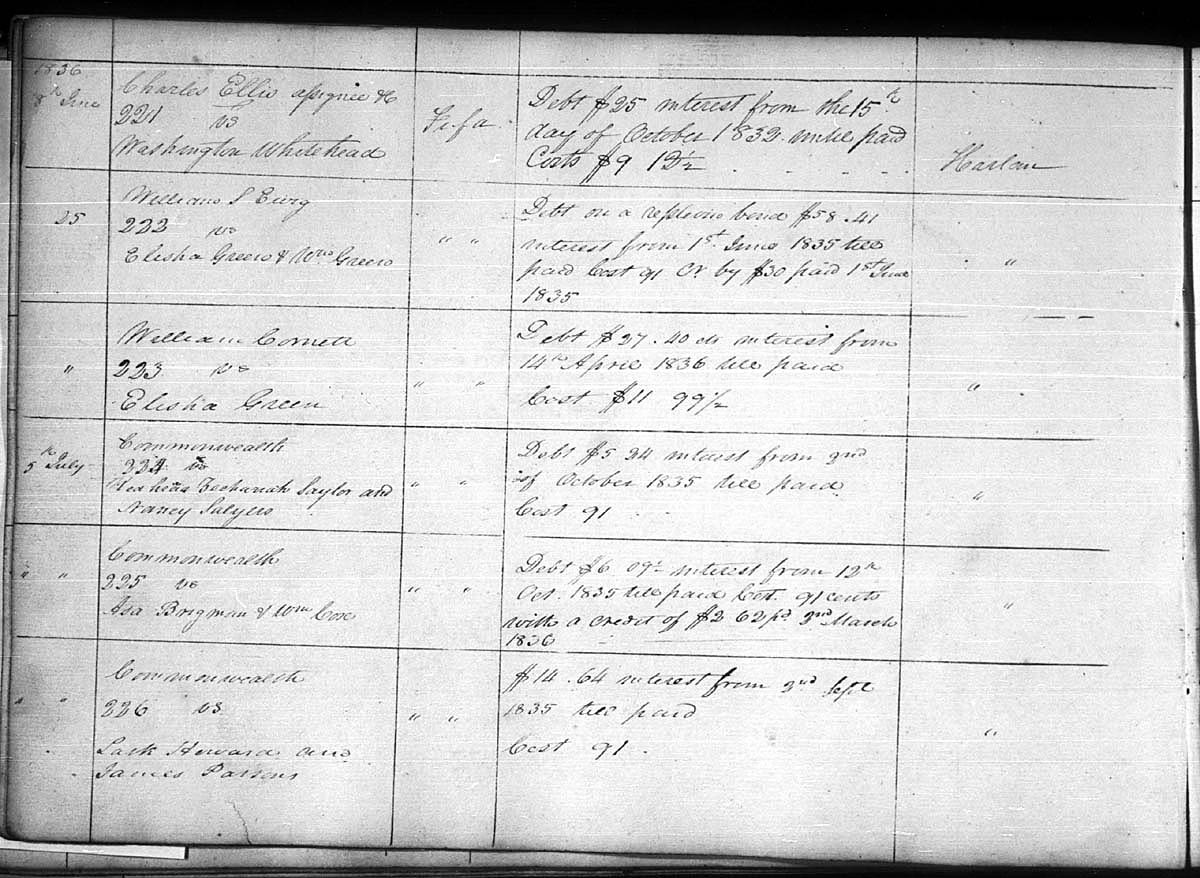 1836
8th June
Charles Ellis assignee &c
221 vs
Washington Whitehead
Fi fa
Debt $25 interest from the 15th
day of October 1832 untill paid
Costs $9 12½
Harlan
25
William S Ewig
222 vs
Elisha Green & Wm Green
" "
Debt on a replevin bond $58.41
interest from 1st June 1835 till
paid Cost 91 Cr by $30 paid 1st June
1835
"
"
William Cornett
223 vs
Elisha Green
" "
Debt $27.40 cts interest from
14th April 1836 till paid
Cost $11 99½
"
5th July
Commonwealth
224 vs
Zechariah Saylor and
Nancy Salyers
" "
Debt $5 34 interest from 2nd
of October 1835 till paid
Cost 91
"
" "
Commonwealth
225 vs
Asa Brigman & Wm Cox
" "
Debt $6 07½ interest from 12th
Oct. 1835 till paid Cost. 91 cents
with a credit of $2 62 pd. 2nd March
1836
"
" "
Commonwealth
226 vs
Lark Howard and
James Parsons
" "
$14.64 interest from 2nd Sept
1835 till paid
Cost 91.
"